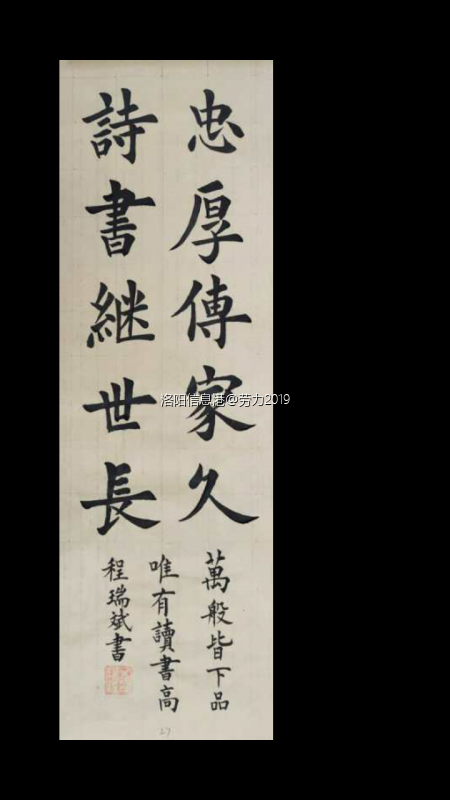 忠厚傳家久
詩書継世長
萬般皆下品
唯有讀書高
程瑞斌書
洛阳信息港@劳力2019
27